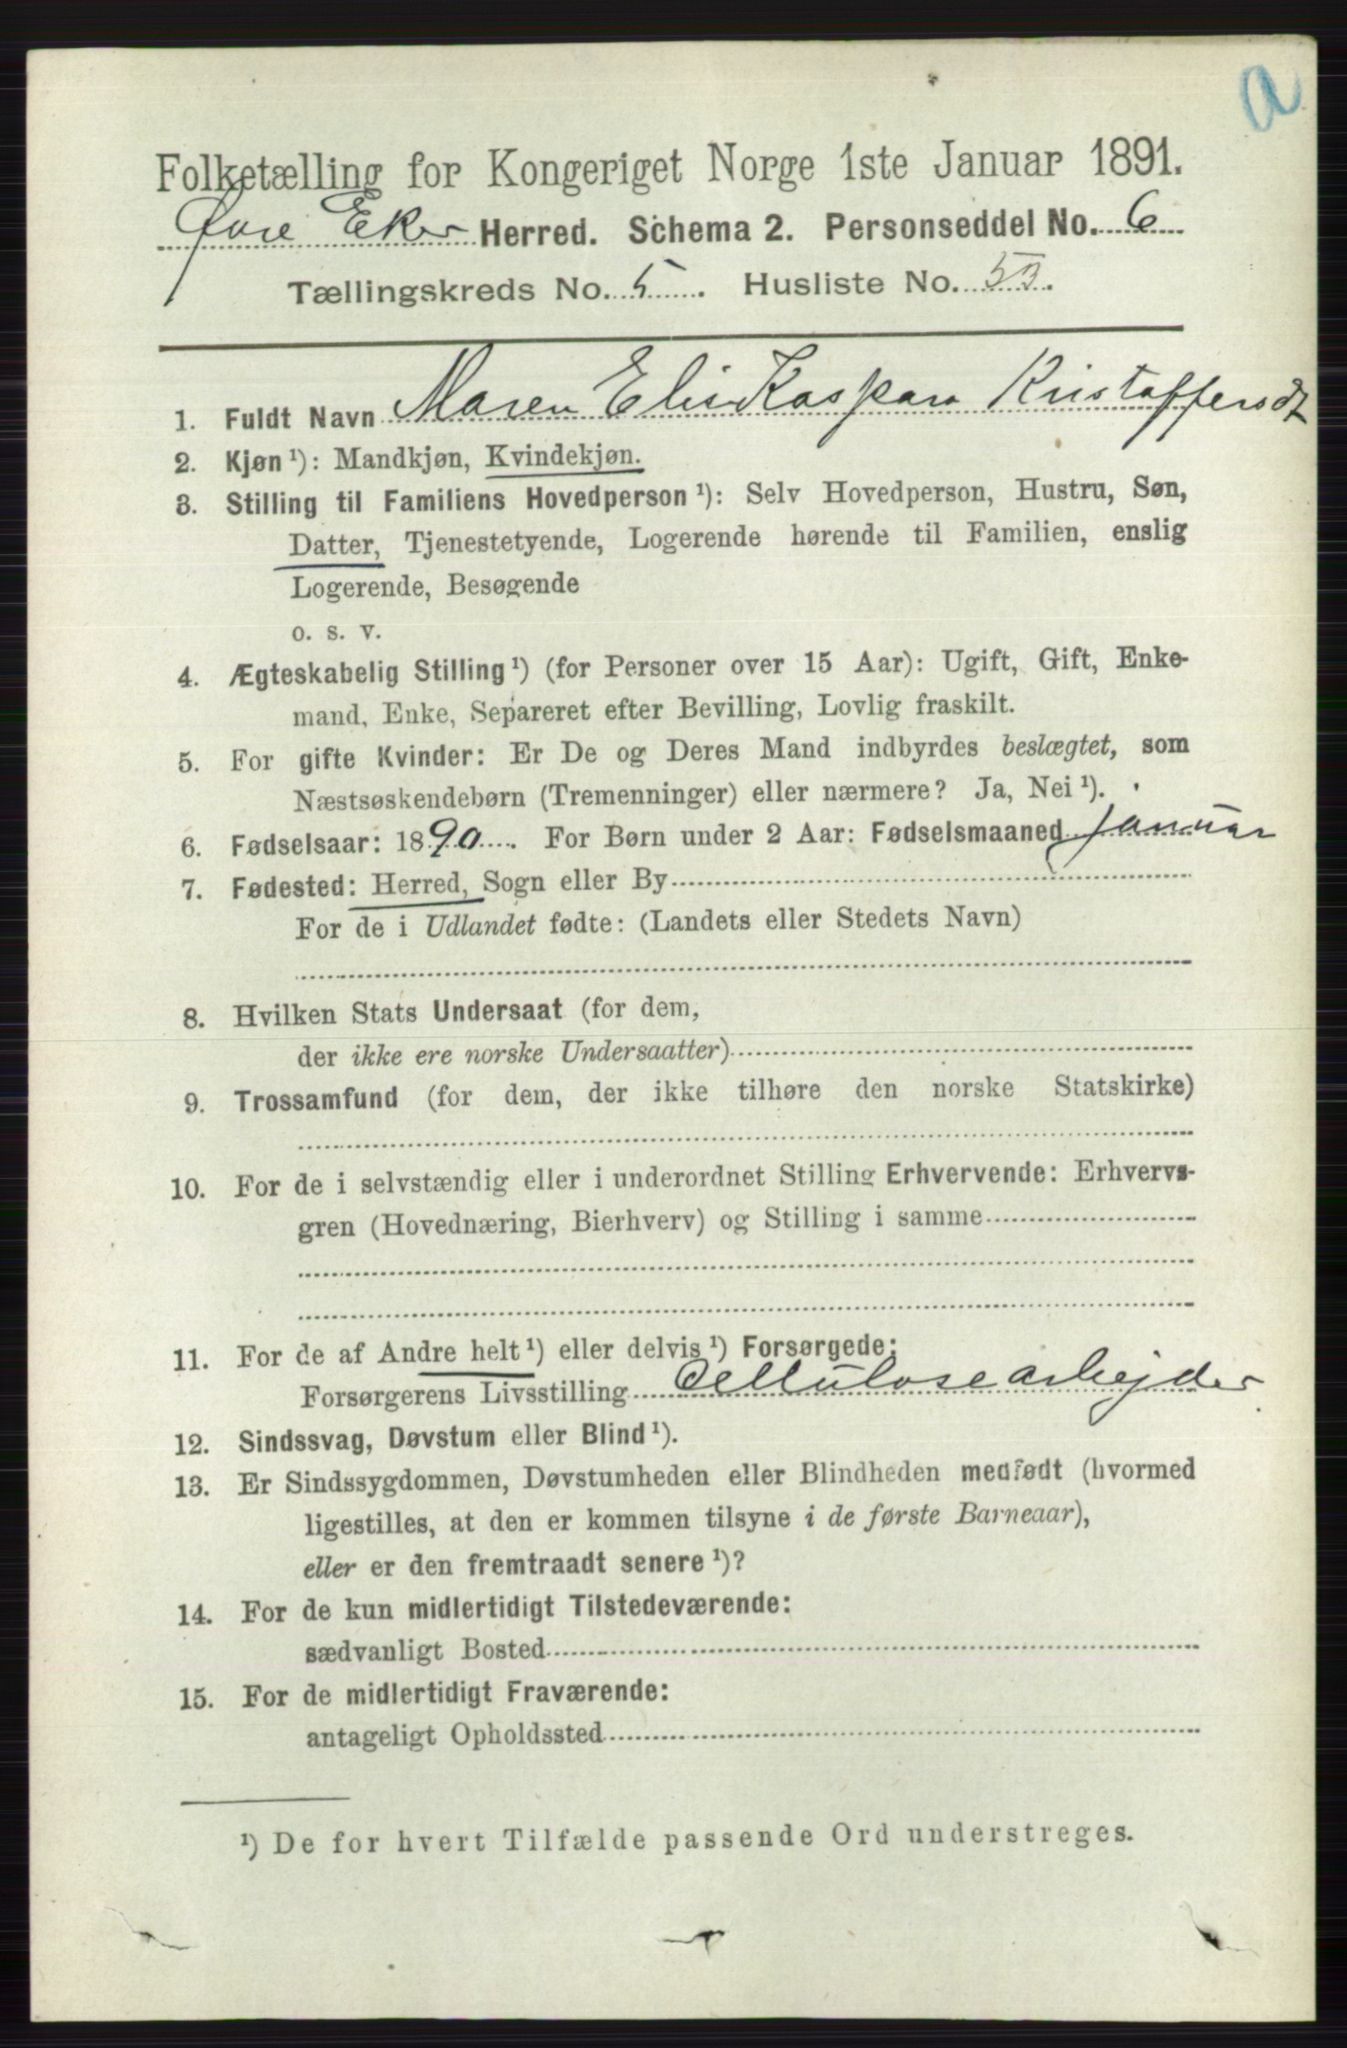 a
Folketælling for Kongeriget Norge 1ste Januar 1891.
Øvre Eker Herred. Schema 2. Personseddel No. 6
Tællingskreds No. 5. Husliste No. 53.
1. Fuldt Navn Maren Elis Kaspara Kristoffersdt
2. Kjøn¹): Mandkjøn, Kvindekjøn.
3. Stilling til Familiens Hovedperson¹): Selv Hovedperson, Hustru, Søn,
Datter, Tjenestetyende, Logerende hørende til Familien, enslig
Logerende, Besøgende
o. s. v.
4. Ægteskabelig Stilling¹) (for Personer over 15 Aar): Ugift, Gift, Enke-
mand, Enke, Separeret efter Bevilling, Lovlig fraskilt.
5. For gifte Kvinder: Er De og Deres Mand indbyrdes beslægtet, som
Næstsøskendebørn (Tremenninger) eller nærmere? Ja, Nei¹).
6. Fødselsaar: 1890. For Børn under 2 Aar: Fødselsmaaned Januar
7. Fødested: Herred, Sogn eller By
For de i Udlandet fødte: (Landets eller Stedets Navn)
8. Hvilken Stats Undersaat (for dem,
der ikke ere norske Undersaatter)
9. Trossamfund (for dem, der ikke tilhøre den norske Statskirke)
10. For de i selvstændig eller i underordnet Stilling Erhvervende: Erhvervs-
gren (Hovednæring, Bierhverv) og Stilling i samme
11. For de af Andre helt¹) eller delvis¹) Forsørgede:
Forsørgerens Livsstilling Cellulosearbejder
12. Sindssvag, Døvstum eller Blind¹).
13. Er Sindssygdommen, Døvstumheden eller Blindheden medfødt (hvormed
ligestilles, at den er kommen tilsyne i de første Barneaar),
eller er den fremtraadt senere¹)?
14. For de kun midlertidigt Tilstedeværende:
sædvanligt Bosted
15. For de midlertidigt Fraværende:
antageligt Opholdssted
¹) De for hvert Tilfælde passende Ord understreges.